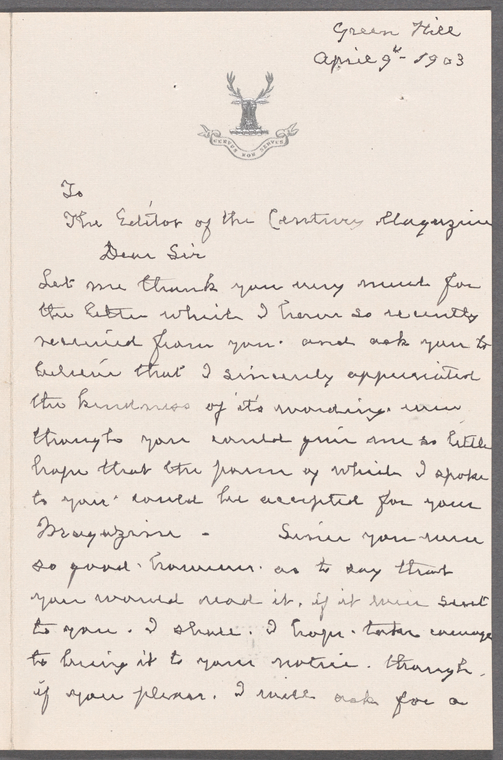 Green Hill
April 9th - 1903
To
The Editor of the Century Magazine
Dear Sir
Let me thank you very much for
the letter which I have so recently
received from you. and ask you to
believe that I sincerely appreciated
the kindness of its wording. even
though you could give me so little
hope that the poem of which I spoke
to you. could be accepted for your
Magazine - Since you were
so good. however. as to say that
you would read it, if it were sent
to you. I shall. I hope. take courage
to bring it to your notice. though.
if you please. I will ask for a